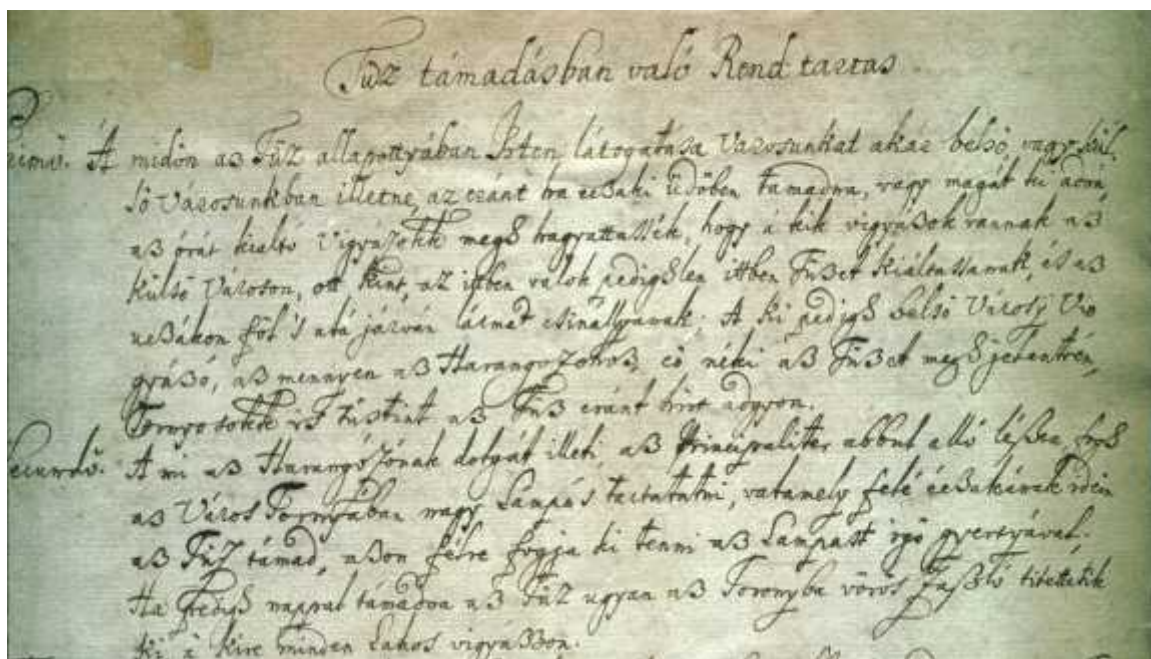 Tűz támadásban való Rend tartas
Primo. A midön aß Tüz allapottyában Isten látogatása Varosunkat akár belső, vagy kül-
ső Városunkban illetne, az eránt ha éczaki üdöben támadna, vagy magát ki adná
aß órát kialtó Vigyázókk meg hagyattassék, hogy á kik vigyáßok vannak aß
Külső Városon, ott kint, az itben valok pediglen ittben Tüßet kiáltassanak, és aß
ucßákon föl 's alá járván lármát csinállyanak; A ki pedig belső Városÿ Vi
gyáßó, aß mennyen aß Harangozohoß, és néki aß Tüßet meg jelentvén,
Tornyosokk is aß Tüß eránt hirt adgyon.
Secundo. A mi aß Harangózónak dolgát illeti, aß Principaliter abbul alló léßen, hogy
aß Város Tornyában nagy Lampás tartatatni, valamely felé éczakának idein
aß Tüz támad, aßon félre fogja ki tenni aß Lampast égö gyertyával.
Ha Pedig nappal támadna aß Tüz ugyan aß Toronyba vörös Zaßló titettetik
Ki á kire minden Lakos vigyáßßon.